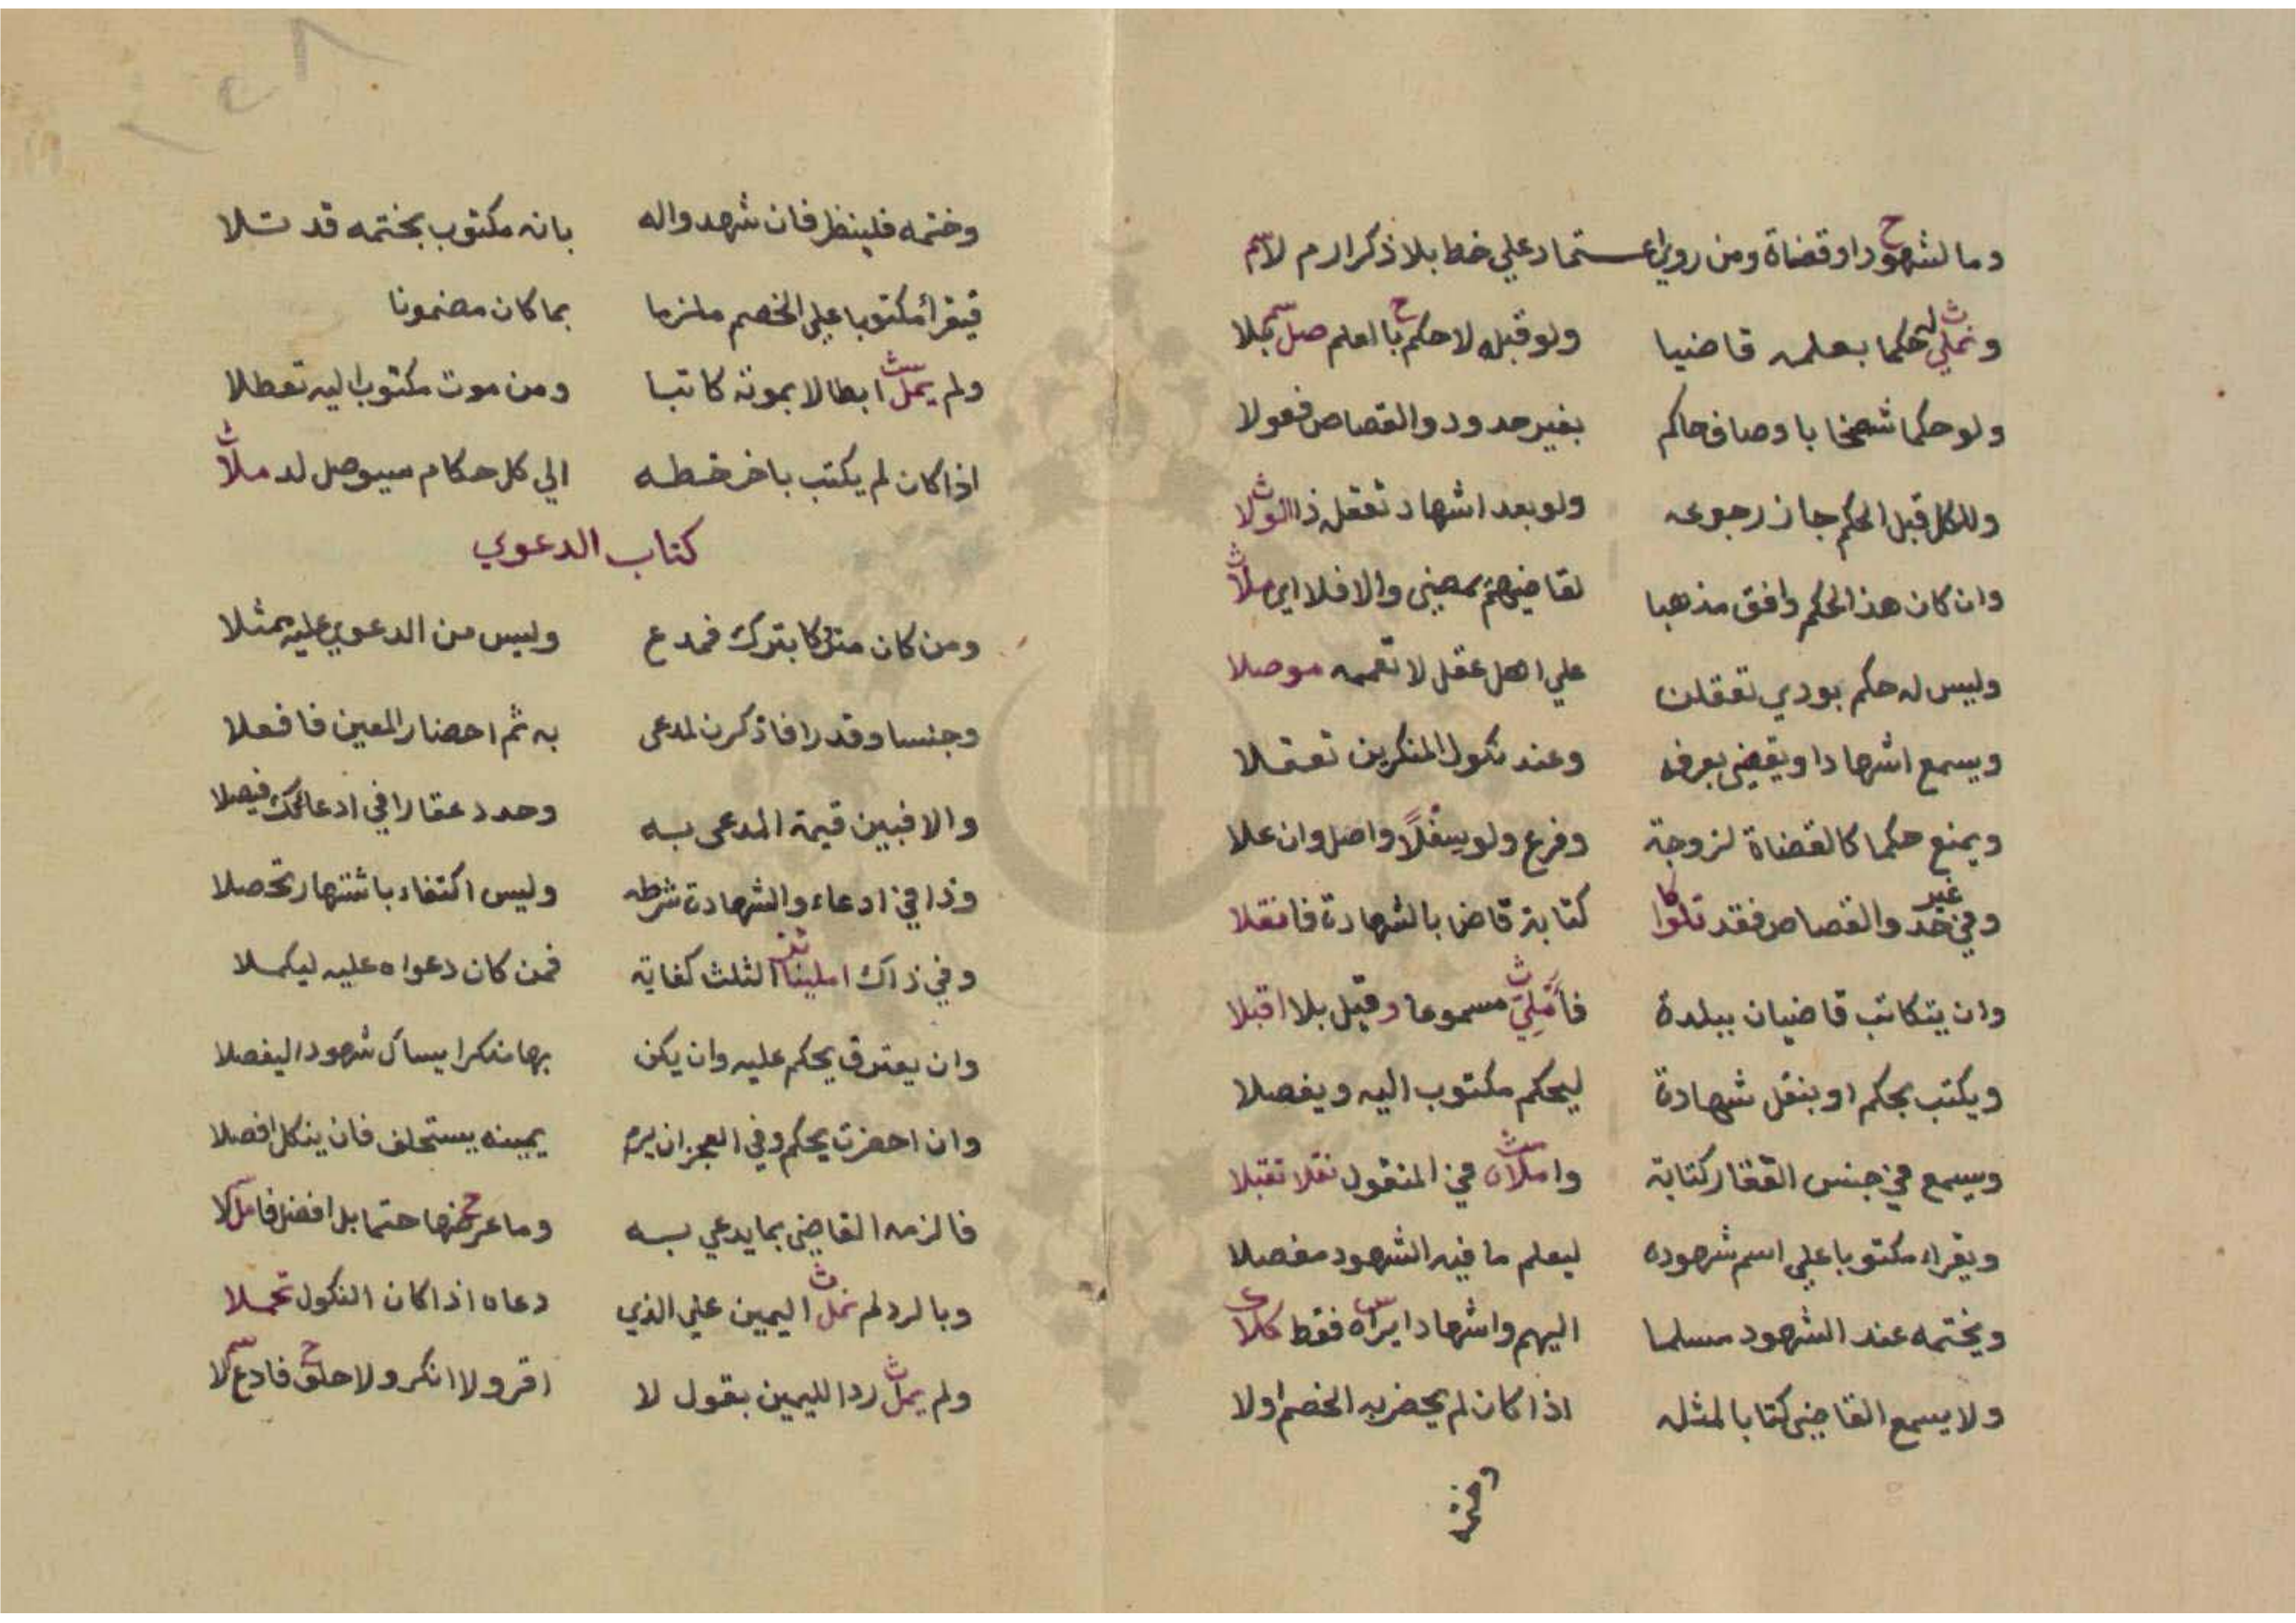 وما لشهود او قضاة ومن روي اعـــتماد علي خط بلا ذكرارم لا
ونملي حكما بعلمه قاضيا ولو قبله لا حكم با العلم صل كلا
ولو حكما شخصا باوصاف حاكم بغير حدود والقصاص فعولا
وللكل قبل الحكم جاز رجوعه ولو بعد اشهاد تعقل ذا الولا
وان كان هذا الحكم وافق مذهبا لقاضيهم يمضي والا فلا اي ملا
وليس له حكم بودي تعقلن علي اهل عقل لا تعممه موصلا
ويسمع اشهادا ويقضي بعرفه وعند نكول المنكرين تعقلا
ويمنع حكما كالقضاة لزوجة وفرع ولو سفلاً واصل وان علا
وفي غير حد والقصاص فقد تلوا كتابة قاض بالشهادة فانقلا
وان يتكاتب قاضيان ببلدة فأملي مسموعا وقيل بلا اقبلا
ويكتب بحكم او بنقل شهادة ليحكم مكتوب اليه ويفصلا
ويسمع في جنس العقار كتابة واملاه في المنقول نقلا تقبلا
ويقراء مكتوبا علي اسم شهوده ليعلم ما فيه الشهود مفصلا
ويختمه عند الشهود مسلما اليهم واشهادا يراه فقط كلا
ولا يسمع القاضي كتابا لمثله اذا كان لم يحضر به الخصم اولا
وختمه
وختمه فلينظر فان شهدوا له بانه مكتوب بختمه قد تلا
فيقرأ مكتوبا علي الخصم ملزما بما كان مضمونا
ولم يمل ابطالا بموته كاتبا ومن موت مكتوب اليه تعطلا
اذا كان لم يكتب باخر خطه الي كل حكام سيوصل لد ملا
كتاب الدعوي
ومن كان متركا بترك فمدع وليس من الدعوي عليه بمثلا
وجنسا وقدرا فاذكرن لمدعى به ثم احضار المعين فافعلا
والا فبين قيمة المدعى بــه وحدد عقارا في ادعائك فيصلا
وذا في ادعاء والشهادة شرطه وليس اكتفاء باشتهار تحصلا
وفي ذاك املينا الثلث كفاية فمن كان دعواه عليه ليكملا
وان يعترف يحكم عليه وان يكن بها منكرا يسأل شهودا ليفصلا
وان احضرت يحكم وفي العجز ان يرم يمينه يستحلف فان ينكل افصلا
فالزمه القاضي بما يدعي بــه وما عرضها حتما بل افضل فامل كلا
وبالرد لم نمل اليمين علي الذي دعاه اذا كان النكول تحملا
ولم يمل ردا لليمين بقول لا اقر ولا انكر ولا حلف فادع كلا